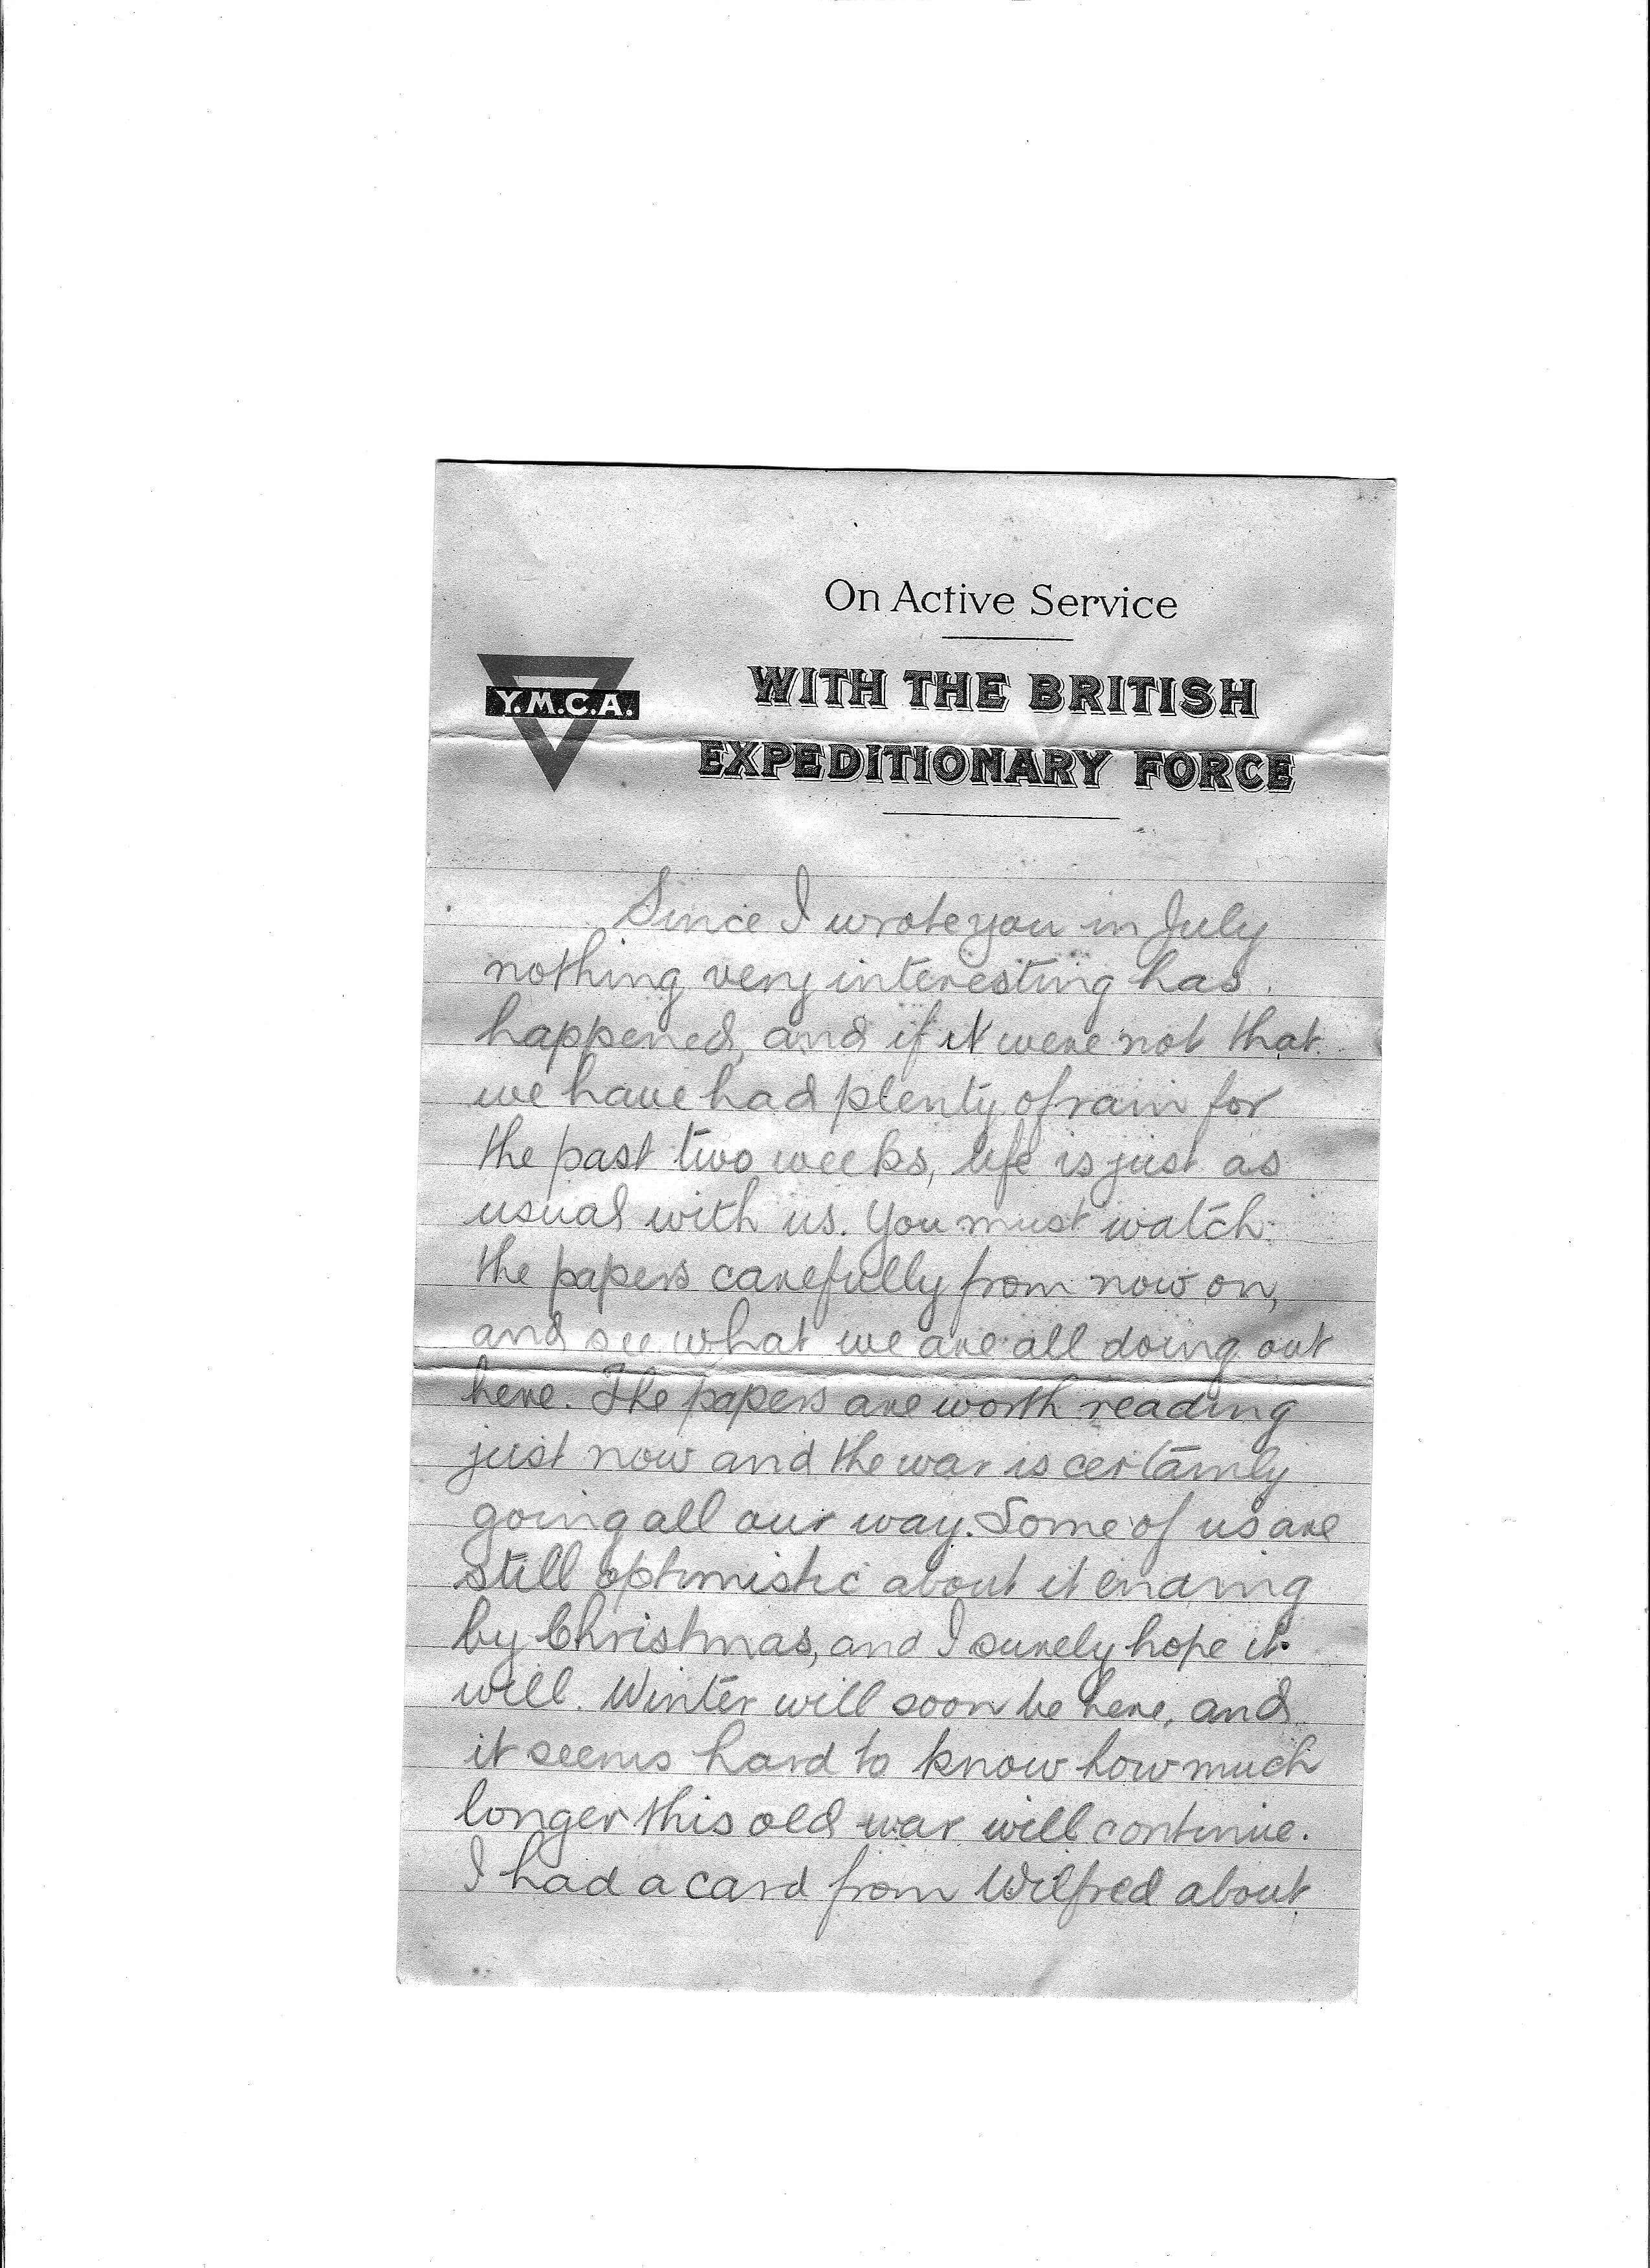 On Active Service
Y.M.C.A.
WITH THE BRITISH
EXPEDITIONARY FORCE
Since I wrote you in July
nothing very interesting has
happened, and if it were not that
we have had plenty of rain for
the past two weeks, life is just as
usual with us. You must watch
the papers carefully from now on,
and see what we are all doing out
here. The papers are worth reading
just now and the war is certainly
going all our way. Some of us are
still optimistic about it ending
by Christmas, and I surely hope it
will. Winter will soon be here, and
it seems hard to know how much
longer this old war will continue.
I had a card from Wilfred about